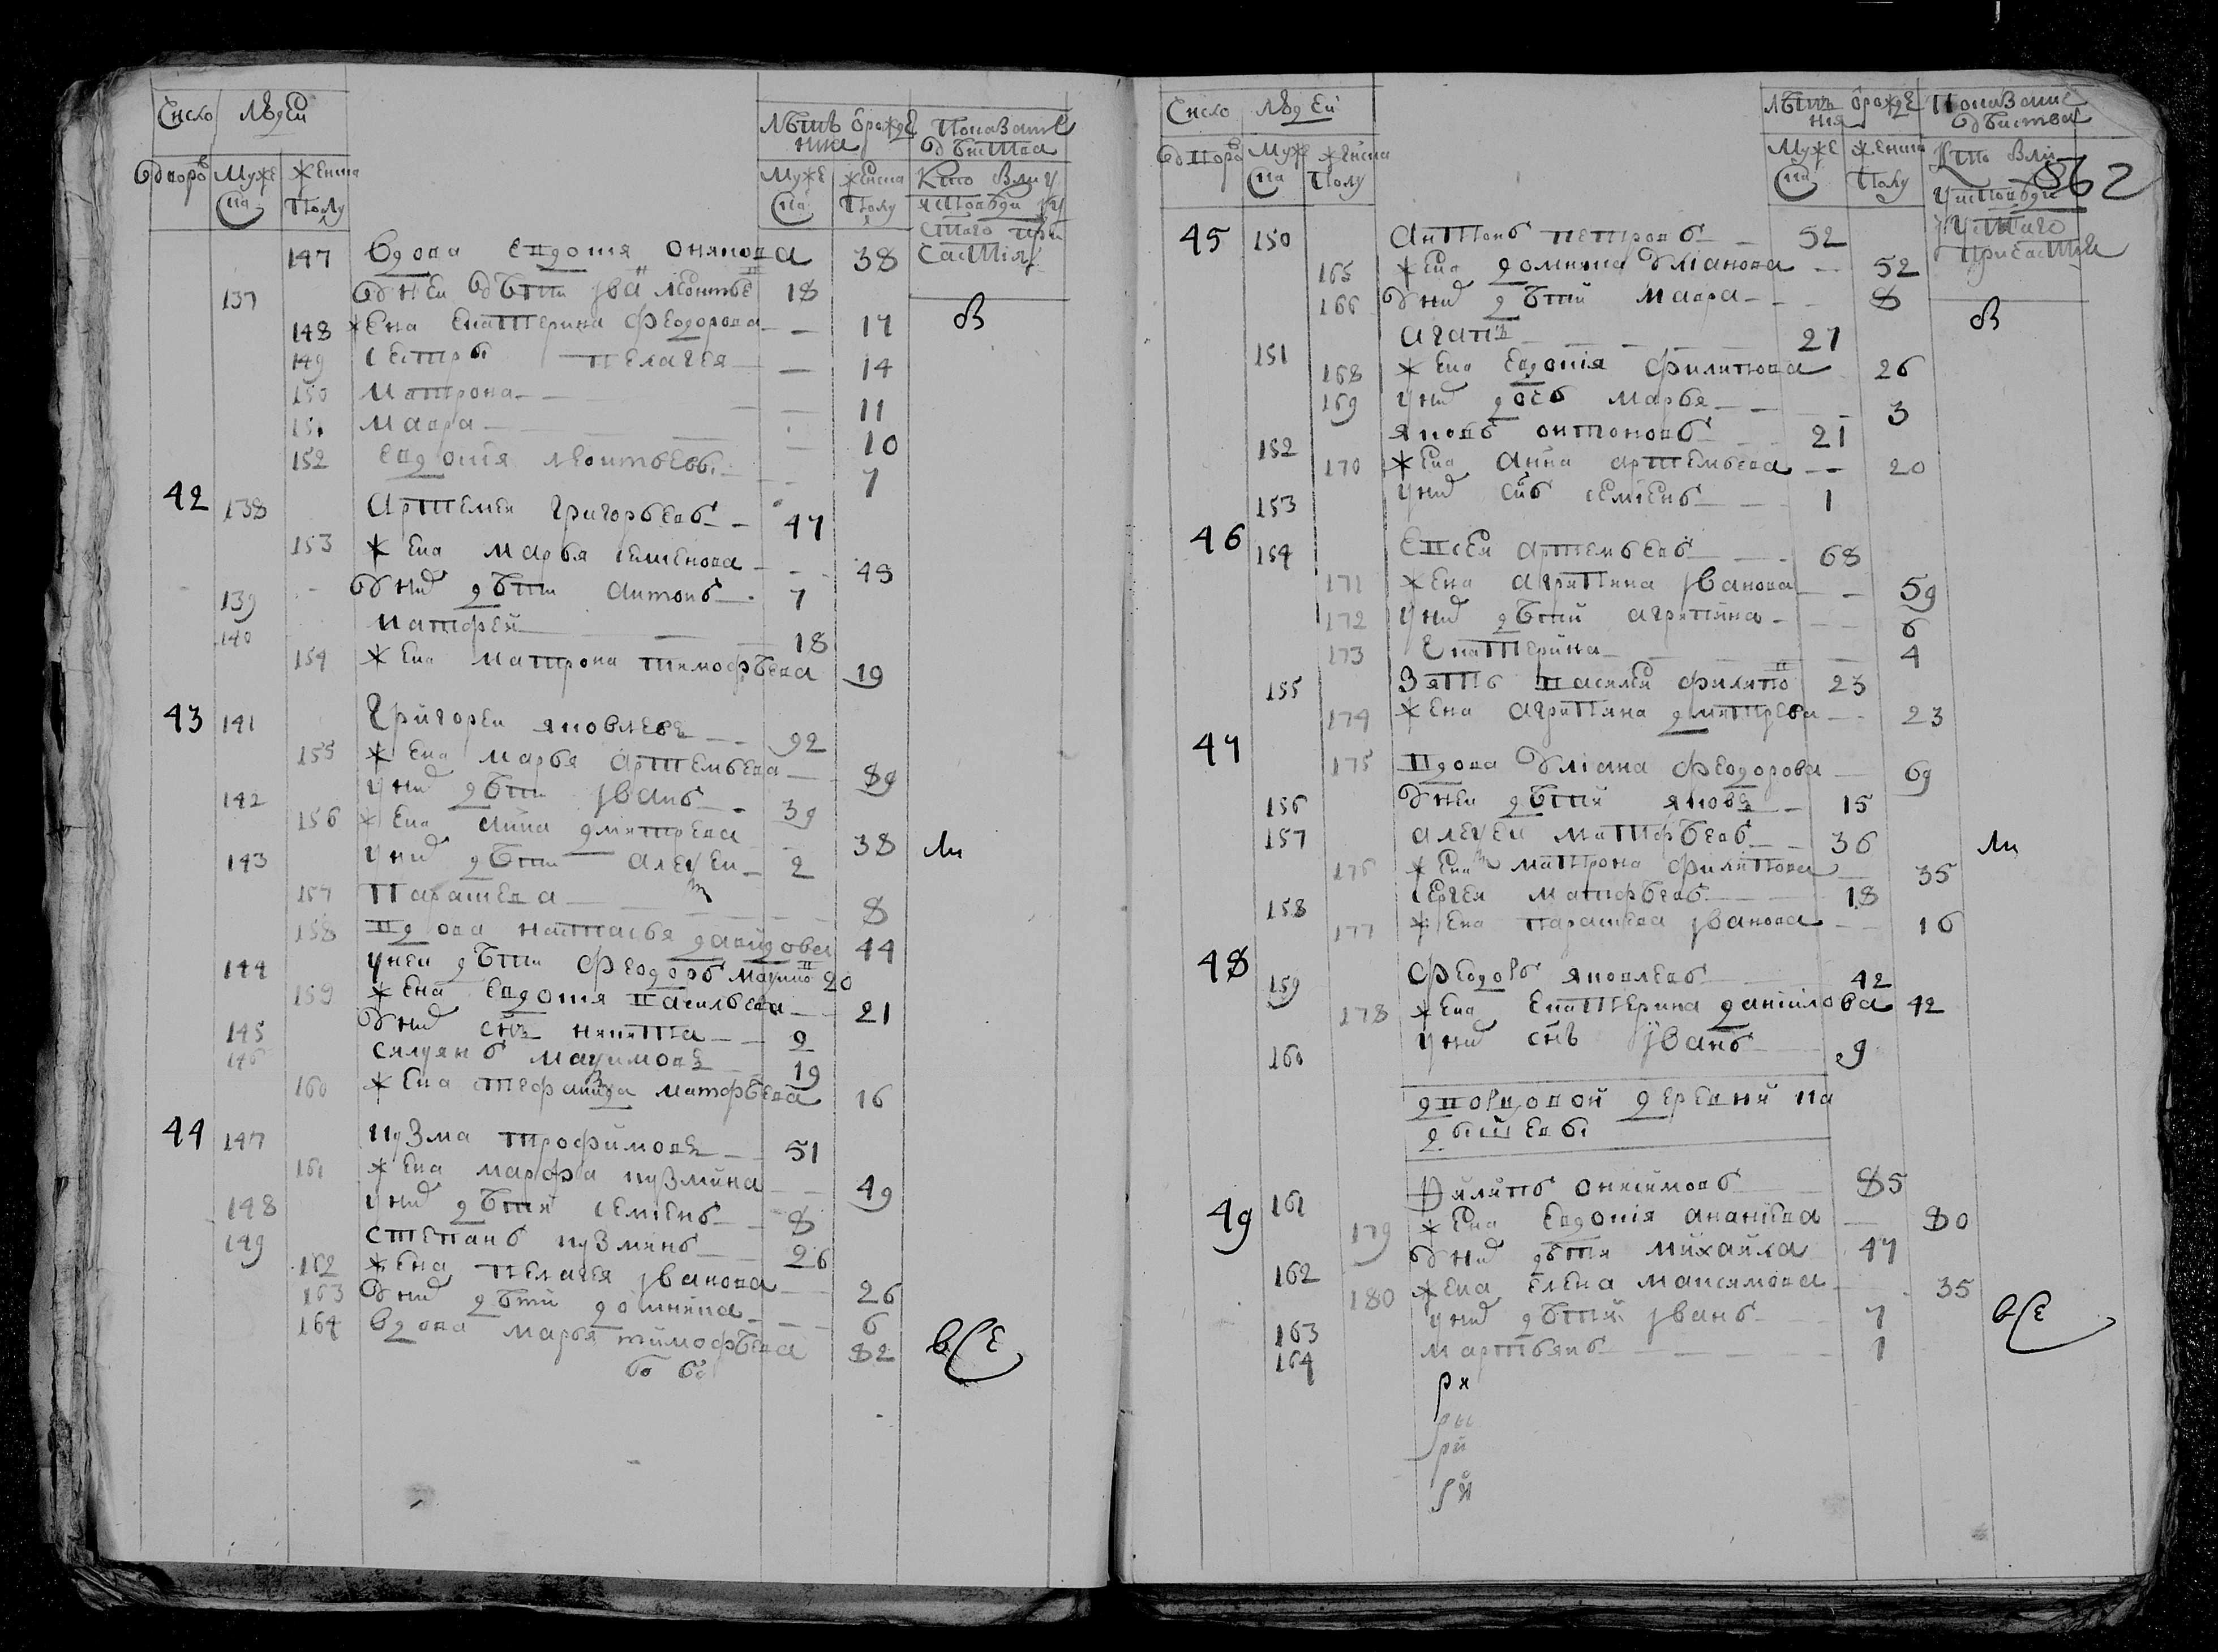 Число Людей
Лѣтъ ѿ рожде
ния
Показание
дѣйства
Дворов Муже
ска Женска
полу
Муже
ска Женска
полу
Кто были у
исповѣди и у
святаго при
частия
147 вдова Евдокия Онянова 38
137 У неи дѣти Иван Леонтьев 18
148 жена Екатерина Феодорова 17
149 сестры Пелагея 14
150 Матрона 11
151 Мавра 10
152 Евдокия Леонтьевы 7
в
42 138 Артемеи Григорьевъ 47
153 жена Марья Семенова 43
139 У них дѣти Антонъ 7
140 Матфей 18
154 жена Матрона Тимофѣева 19
43 141 Григореи Яковлевъ 92
155 жена Марья Артемьева 89
142 У них дѣти Иванъ 39
156 жена Анна Дмитрева 38
143 У них дѣти Алеѯеи 2
157 Парасцева 8
158 Вдова Настасья Давидова 44
144 У неи дѣти Феодоръ Маѯимов 20
159 жена Евдокия Васильева 21
145 У них сынъ Никита 2
146 Силуянъ Маѯимовъ 19
160 жена Стефанида Матфѣева 16
ли
44 147 Кузма Трофимовъ 51
161 жена Марфа Кузмина 49
148 У них дѣти Семенъ 8
149 Степанъ Кузминъ 26
162 жена Пелагея Иванова 26
163 У них дѣти Домника 6
164 вдова Марья Тимофѣева 82
все
Число Людей
Лѣтъ ѿ рожде
ния
Показание
дѣйства
Дворов Муже
ска Женска
полу
Муже
ска Женска
полу
Кто были
у исповѣди
и у святаго
причастия
862
45 150 Антонъ Петровъ 52
165 жена Домника Улианова 52
166 У них дѣти Мавра 8
151 Агапъ 27
168 жена Евдокия Филипова 26
169 У них дочь Марья 3
152 Яковъ Онтоновъ 21
170 жена Анна Артемьева 20
153 У них сынъ Семенъ 1
в
46 154 Евсеи Артемьевъ 68
171 жена Агрипина Иванова 59
172 У них дѣти Агрипина 6
173 Екатерина 4
155 Зять Василеи Филипов 23
174 жена Агрипина Дмитрева 23
47 175 Вдова Улиана Феодорова 69
156 У неи дѣти Яковъ 15
157 Алеѯеи Матфѣевъ 36
176 жена Матрона Филипова 35
158 Сергеи Матфѣевъ 18
177 жена Парасцева Иванова 16
ли
48 159 Феодоръ Яковлевъ 42
178 жена Екатерина Данилова 42
160 У них сынъ Иванъ 9
дворцовой деревни Ка
дышевы
49 161 Филипъ Онисимовъ 85
179 жена Евдокия Ананиева 80
162 У них дѣти Михаила 47
180 жена Елена Максимова 35
163 У них дѣти Иванъ 7
164 Мартьянъ 1
все